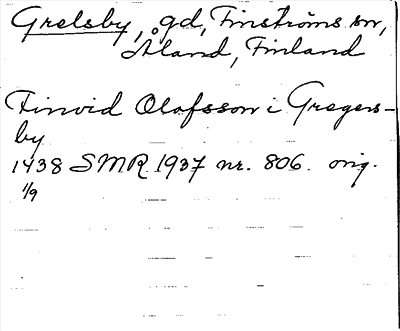 Grelsby, gd, Finströms sn,
Åland, Finland
Finvid Olofsson i Gregers-
by
1438 SMR 1937 nr. 806. orig.
1/9